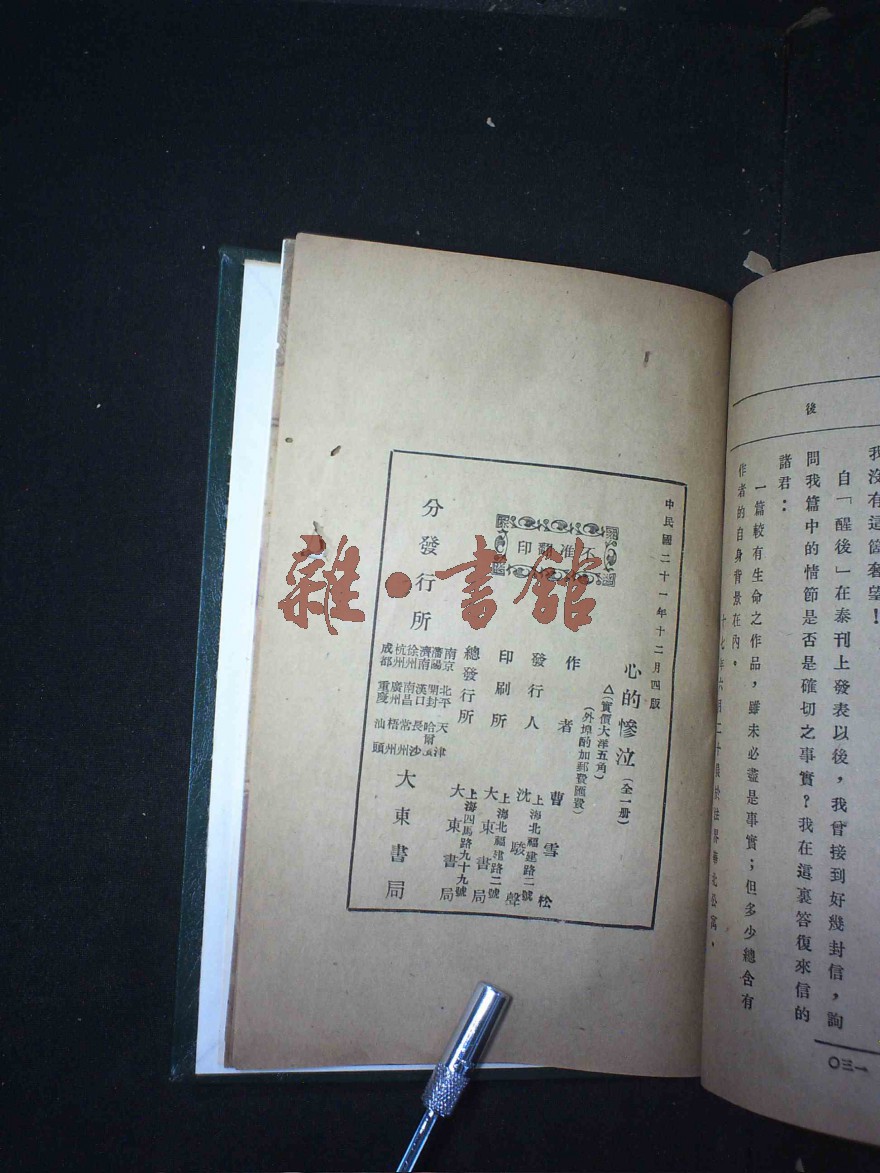 後
我沒有這箇奢望！
自「醒後」在泰刊上發表以後，我曾接到好幾封信，詢
問我篇中的情節是否是確切之事實？我在這裏答復來信的
諸君：
一篇較有生命之作品，雖未必盡是事實；但多少總含有
作者的自身背景在內。
一三〇
中民國二十一年十二月四版
心的慘泣（全一册）
△（實價大洋五角）
（外埠酌加郵費匯費）
不准翻印
作者 曹雪松
發行人 沈駿聲
上海北福建路二號
印刷所 大東書局
上海北福建路二號
總發行所 大東書局
上海四馬路九十九號
分發行所 大東書局
南京 北平 天津
瀋陽 開封 哈爾濱
濟南 漢口 長沙
徐州 南昌 常州
杭州 廣州 梧州
成都 重慶 汕頭
雜·書館